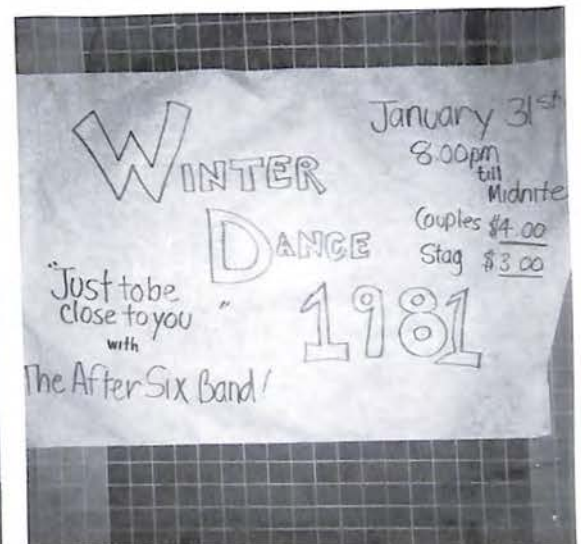 WINTER
DANCE
1981
January 31st
8.00pm
till
Midnite
Couples $4.00
Stag $3.00
"Just to be
close to you"
with
The After Six Band!